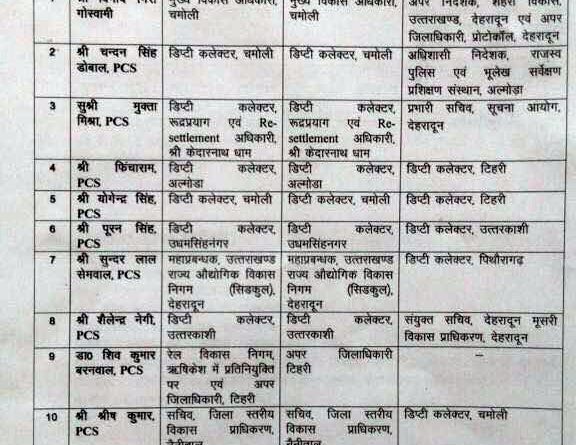 गोस्वामी
मुख्य विकास अधिकारी,
चमोली
मुख्य विकास अधिकारी,
चमोली
अपर निदेशक, शहरी विकास,
उत्तराखण्ड, देहरादून एवं अपर
जिलाधिकारी, प्रोटोकॉल, देहरादून
2
श्री चन्दन सिंह
डोबाल, PCS
डिप्टी कलेक्टर, चमोली
डिप्टी कलेक्टर, चमोली
अधिशासी निदेशक, राजस्व
पुलिस एवं भूलेख सर्वेक्षण
प्रशिक्षण संस्थान, अल्मोडा
3
सुश्री मुक्ता
मिश्रा, PCS
डिप्टी कलेक्टर,
रूद्रप्रयाग एवं Re-
settlement अधिकारी,
श्री केदारनाथ धाम
डिप्टी कलेक्टर,
रूद्रप्रयाग एवं Re-
settlement अधिकारी,
श्री केदारनाथ धाम
प्रभारी सचिव, सूचना आयोग,
देहरादून
4
श्री फिंचाराम,
PCS
डिप्टी कलेक्टर,
अल्मोडा
डिप्टी कलेक्टर,
अल्मोडा
डिप्टी कलेक्टर, टिहरी
5
श्री योगेन्द्र सिंह,
PCS
डिप्टी कलेक्टर, चमोली
डिप्टी कलेक्टर, चमोली
डिप्टी कलेक्टर, टिहरी
6
श्री पूरन सिंह,
PCS
डिप्टी कलेक्टर,
उधमसिंहनगर
डिप्टी कलेक्टर,
उधमसिंहनगर
डिप्टी कलेक्टर, उत्तरकाशी
7
श्री सुन्दर लाल
सेमवाल, PCS
महाप्रबन्धक, उत्तराखण्ड
राज्य औद्योगिक विकास
निगम (सिडकुल),
देहरादून
महाप्रबन्धक, उत्तराखण्ड
राज्य औद्योगिक विकास
निगम (सिडकुल),
देहरादून
डिप्टी कलेक्टर, पिथौरागढ़
8
श्री शैलेन्द्र नेगी,
PCS
डिप्टी कलेक्टर,
उत्तरकाशी
डिप्टी कलेक्टर,
उत्तरकाशी
संयुक्त सचिव, देहरादून मूसरी
विकास प्राधिकरण, देहरादून
9
डा0 शिव कुमार
बरनवाल, PCS
रेल विकास निगम,
ऋषिकेश में प्रतिनियुक्ति
पर एवं अपर
जिलाधिकारी, टिहरी
अपर जिलाधिकारी
टिहरी
–
10
श्री श्रीष कुमार,
PCS
सचिव, जिला स्तरीय
विकास प्राधिकरण,
नैनीताल
सचिव, जिला स्तरीय
विकास प्राधिकरण,
नैनीताल
डिप्टी कलेक्टर, चमोली